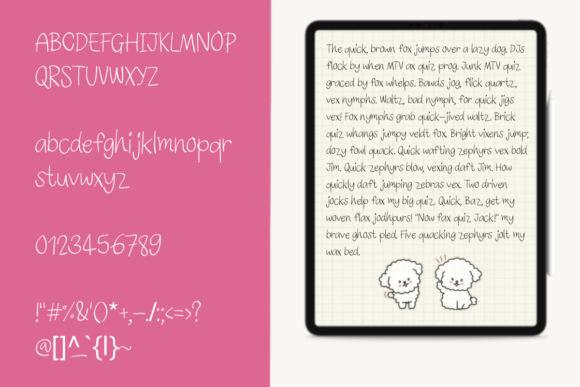 ABCDEFGHIJKLMNOP
QRSTUVWXYZ
abcdefghijklmnopqr
stuvwxyz
0123456789
!"#%&'()*+,–./:;<=>?
@[]^_`{|}~
The quick, brown fox jumps over a lazy dog. DJs
flock by when MTV ax quiz prog. Junk MTV quiz
graced by fox whelps. Bawds jog, flick quartz,
vex nymphs. Waltz, bad nymph, for quick jigs
vex! Fox nymphs grab quick-jived waltz. Brick
quiz whangs jumpy veldt fox. Bright vixens jump;
dozy fowl quack. Quick wafting zephyrs vex bold
Jim. Quick zephyrs blow, vexing daft Jim. How
quickly daft jumping zebras vex. Two driven
jocks help fax my big quiz. Quick, Baz, get my
woven flax jodhpurs! "Now fax quiz Jack!" my
brave ghost pled. Five quacking zephyrs jolt my
wax bed.